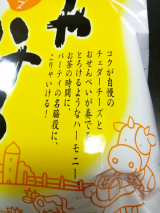 コクが自慢の
チェダーチーズと
おせんべいが奏でる
とろけるようなハーモニー
お茶の時間に、
パーティの名脇役に、
こりゃいける！